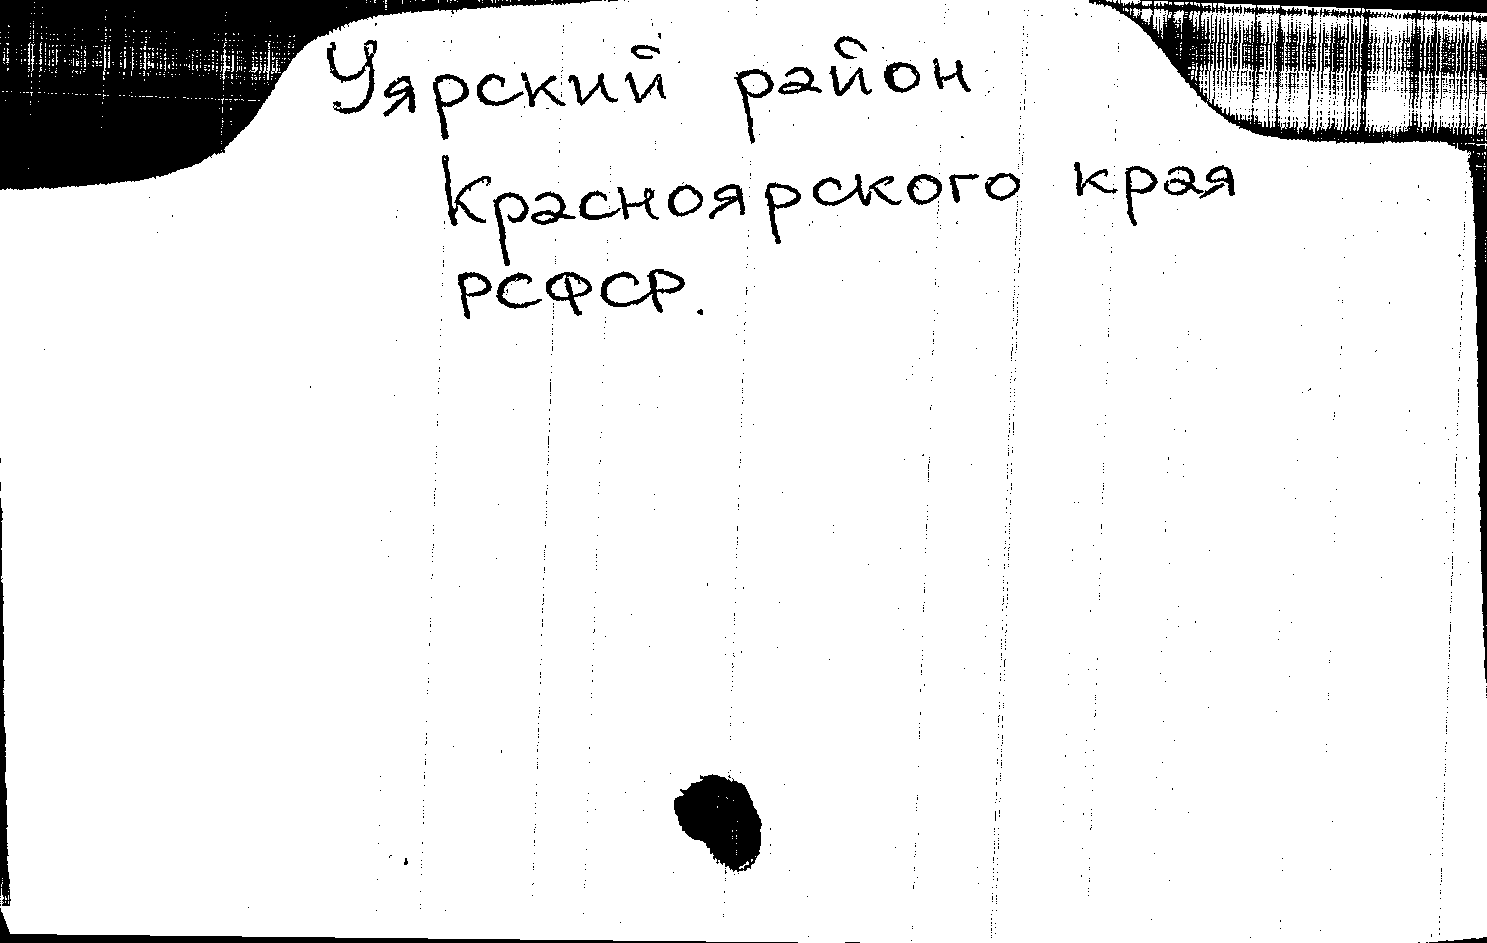 Уярский район
Красноярского края
РСФСР.